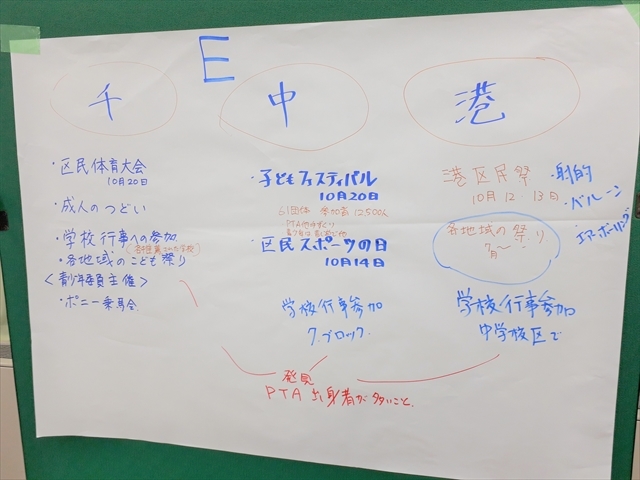 E
千
中
港
・区民体育大会
10月20日
・成人のつどい
・学校行事への参加
・各地域のこども祭り
<青少年委員主催>
・ポニー乗馬会
・子どもフェスティバル
10月20日
61団体 参加者 12,500人
・区民スポーツの日
10月14日
学校行事参加
7.ブロック.
港区民祭
10月12・13日
・射的
・バルーン
・エアーボーリング
各地域の祭り
7月〜
学校行事参加
中学校区で
発見
PTA出身者が多いこと.